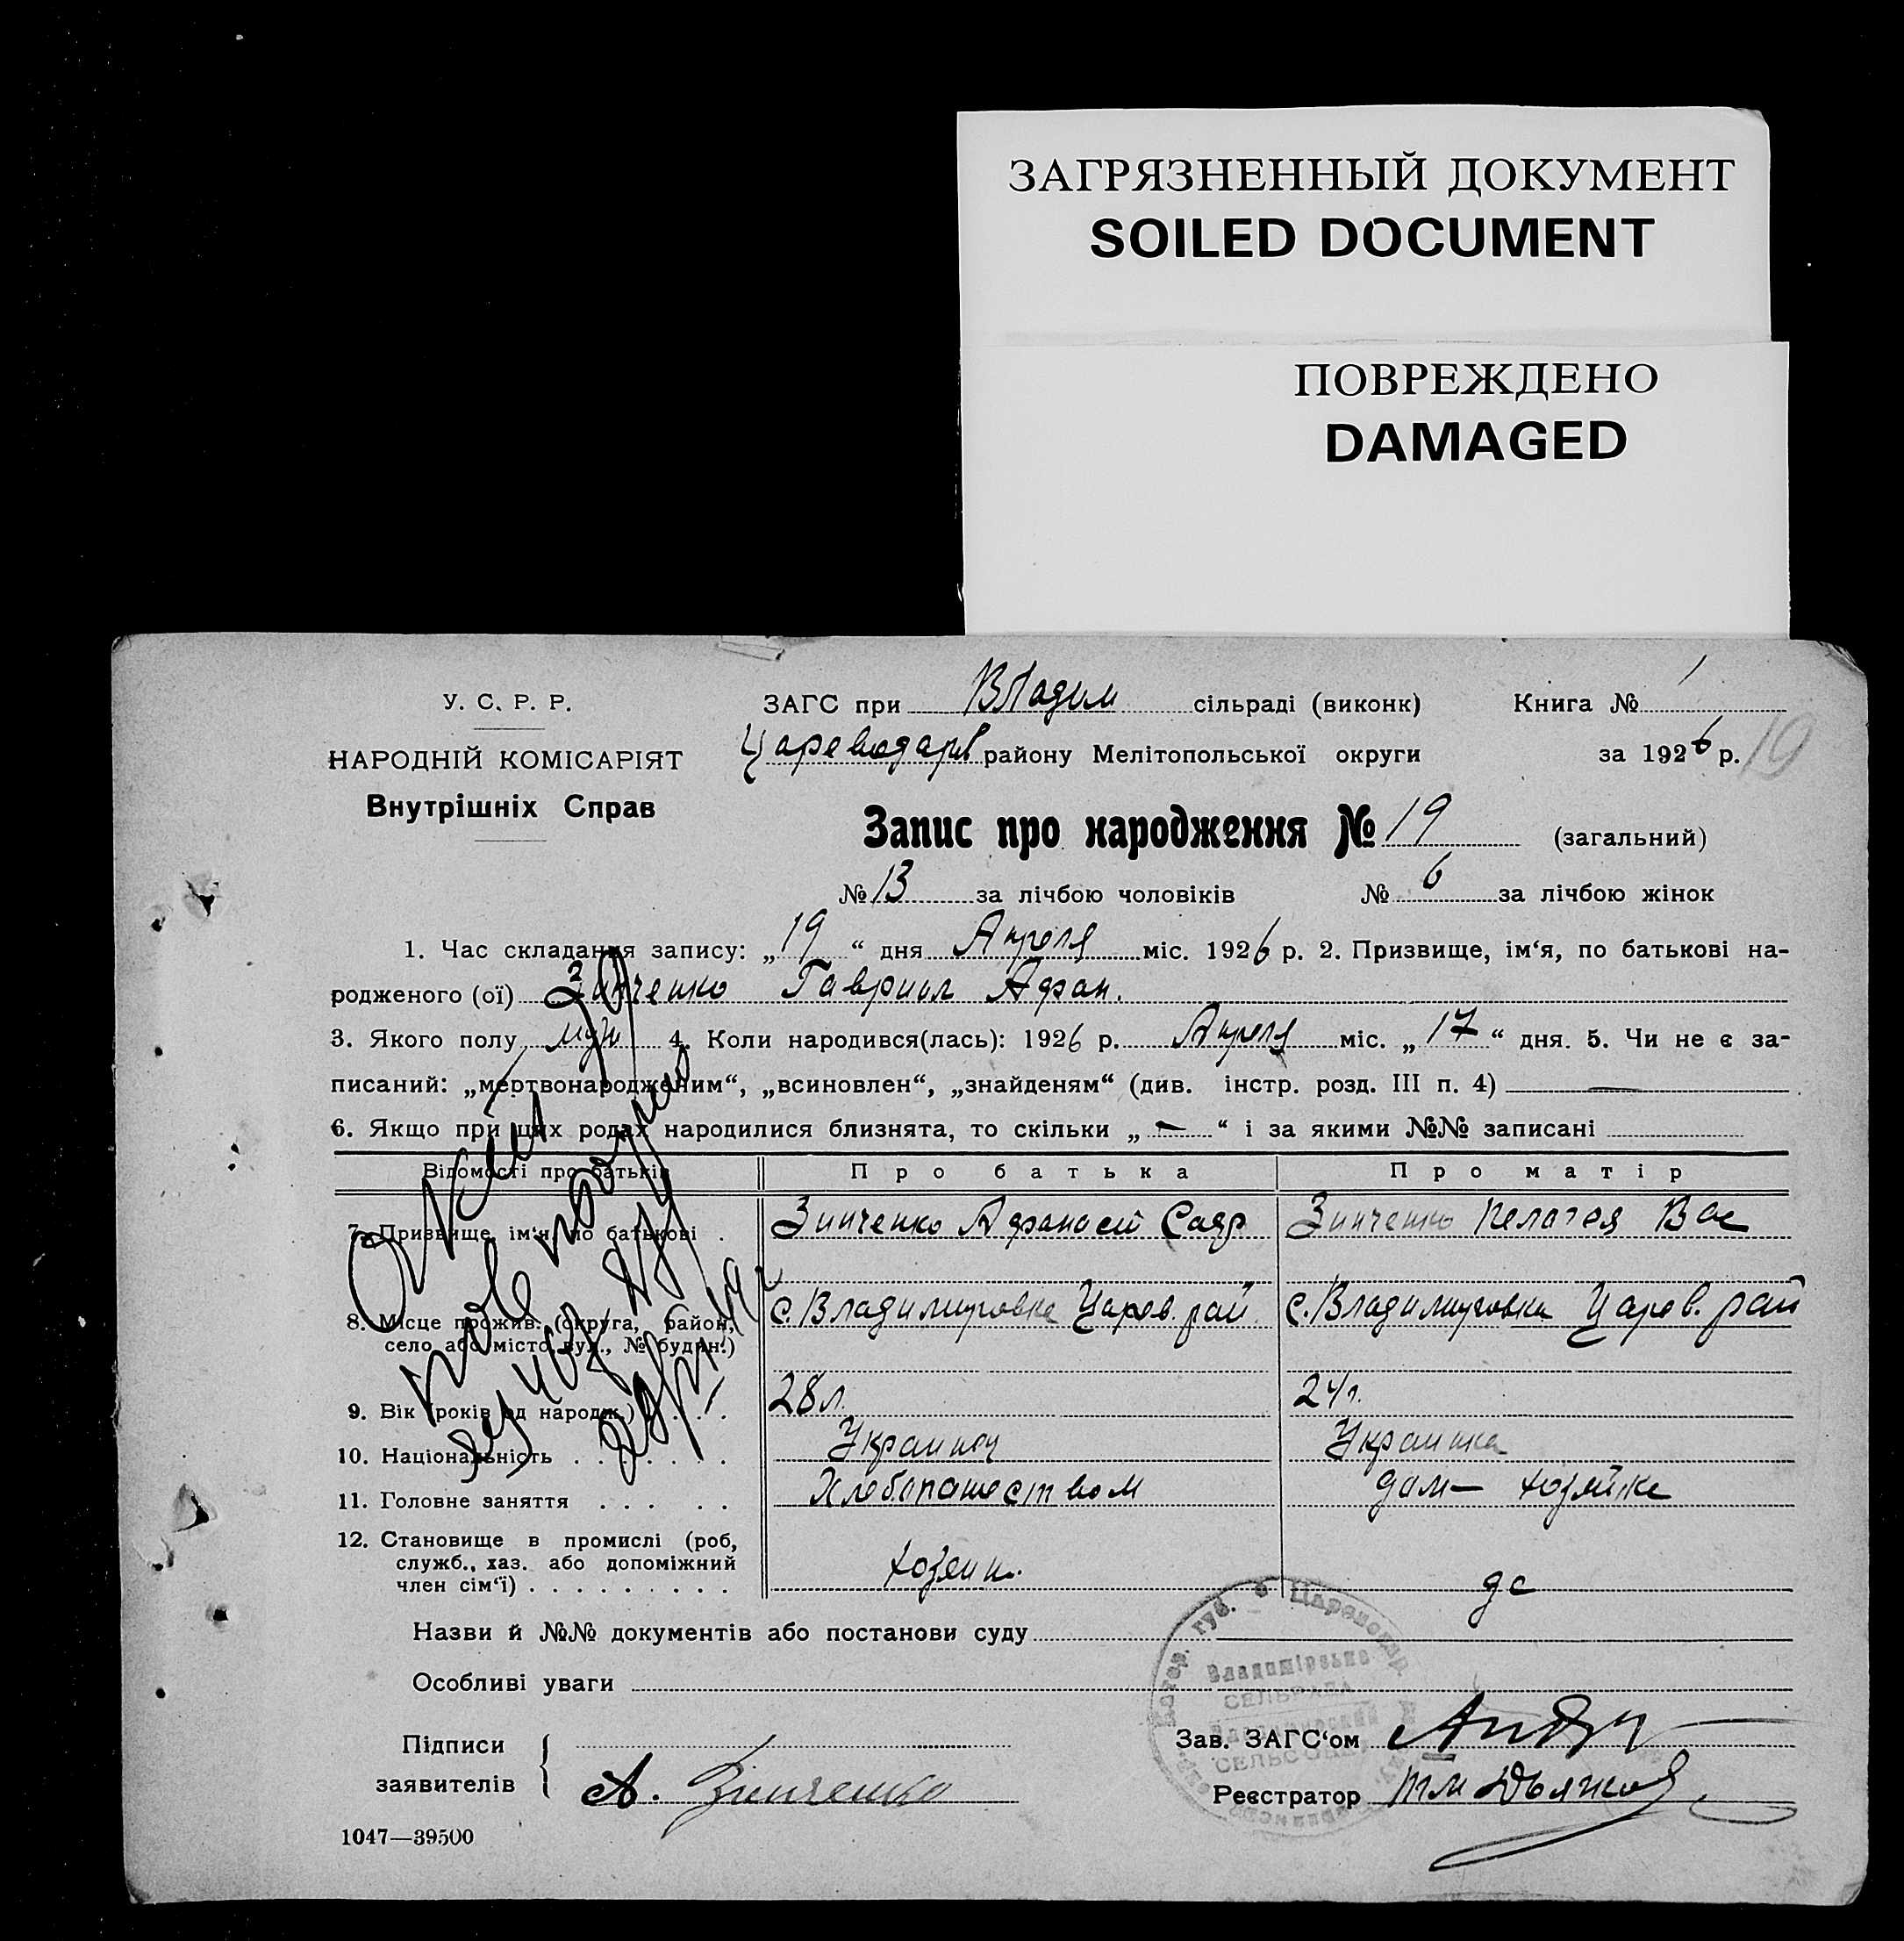 ЗАГРЯЗНЕННЫЙ ДОКУМЕНТ
SOILED DOCUMENT
ПОВРЕЖДЕНО
DAMAGED
У. С. Р. Р.
НАРОДНІЙ КОМІСАРІЯТ
Внутрішніх Справ
ЗАГС при Владим сільраді (виконк) Книга № 1
Цареводарів району Мелітопольської округи за 1926 р. 19
Запис про народження № 19 (загальний)
№ 13 за лічбою чоловіків № 6 за лічбою жінок
1. Час складання запису: „19“ дня Апреля міс. 1926 р. 2. Призвище, ім‘я, по батькові на-
родженого (ої) Зинченко Гавриил Афан.
3. Якого полу муж 4. Коли народився(лась): 1926 р. Апреля міс. „17“ дня. 5. Чи не є за-
писаний: „мертвонародженим“, „всиновлен“, „знайденям“ (див. інстр. розд. III п. 4) —
6. Якщо при цих родах народилися близнята, то скільки „—“ і за якими №№ записані
Відомості про батьків Про батька Про матір
7. Призвище, ім‘я, по батькові . Зинченко Афанасий Зинченко Пелагея Вас
8. Місце прожив. (округа, район, с. Владимировка Царев. рай. с. Владимировка Царев. рай
село або місто, вул., № будин.)
9. Вік (років од народж.) . . . . 28 л. 24 г.
10. Національність . . . . . . . Украинец Украинка
11. Головне заняття . . . . . Хлебопашеством дом— хозяйка
12. Становище в промислі (роб,
служб., хаз. або допоміжний
член сім‘ї) . . . . . . . . . хозяин. дс
Назви й №№ документів або постанови суду
Особливі уваги
Владимірська
СЕЛЬРАДА
СЕЛЬСОВЕТ
Підписи
заявителів А. Зинченко
Зав. ЗАГС‘ом
Реєстратор
1047—39500